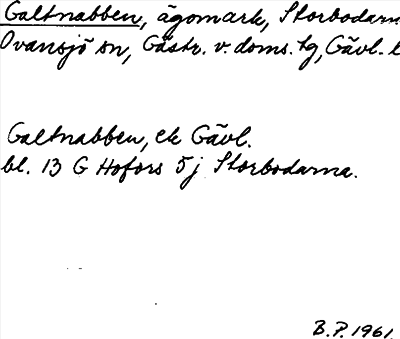 Galtnabben, ägomark, Storbodarn
Ovansjö sn, Gästr. v. doms. tg, Gävl. l
Galtnabben, ek Gävl.
bl. 13 G Hofors 5j Storbodarna.
B.P. 1961